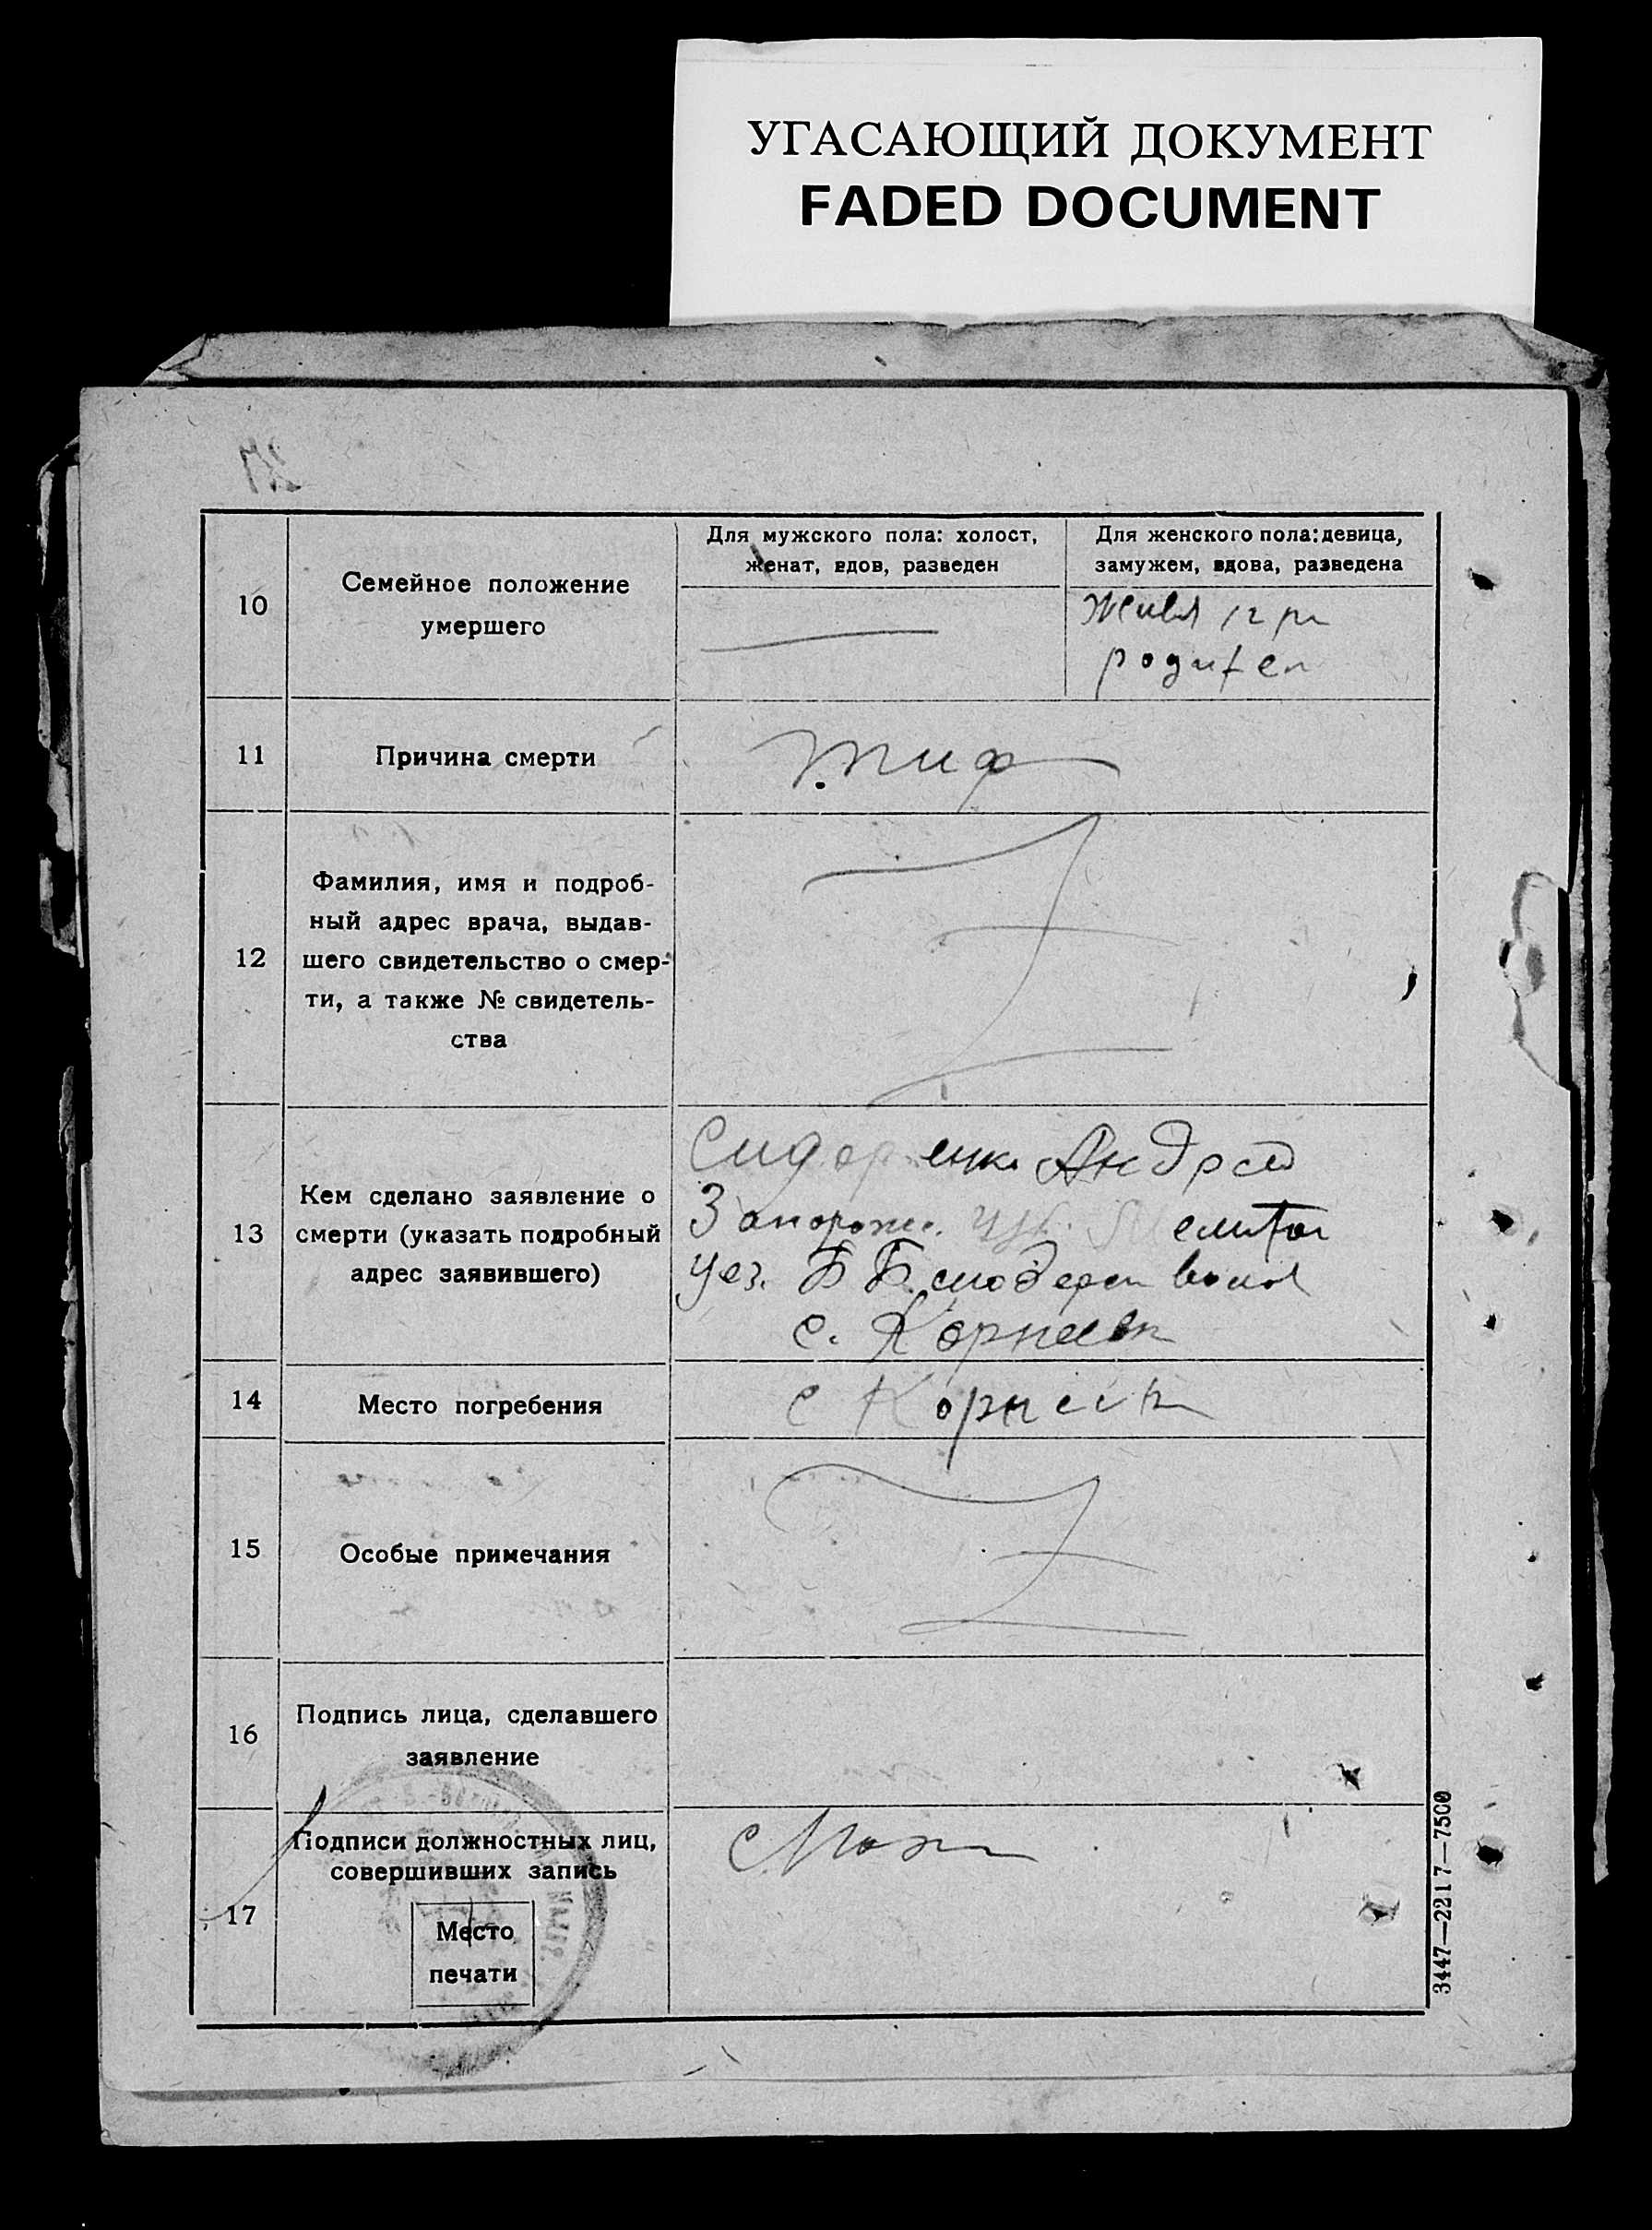 УГАСАЮЩИЙ ДОКУМЕНТ
FADED DOCUMENT
10
Семейное положение
умершего
Для мужского пола: холост,
женат, вдов, разведен
Для женского пола: девица,
замужем, вдова, разведена
при
родител
11
Причина смерти
тиф
12
Фамилия, имя и подроб-
ный адрес врача, выдав-
шего свидетельство о смер-
ти, а также № свидетель-
ства
13
Кем сделано заявление о
смерти (указать подробный
адрес заявившего)
Сидоренк Андрей
Запорож. губ. Мелитоп
уез. Б Б
с. Корнеевк
14
Место погребения
с Корнеевк
15
Особые примечания
16
Подпись лица, сделавшего
заявление
17
Подписи должностных лиц,
совершивших запись
Место
печати
3447—2217—7500